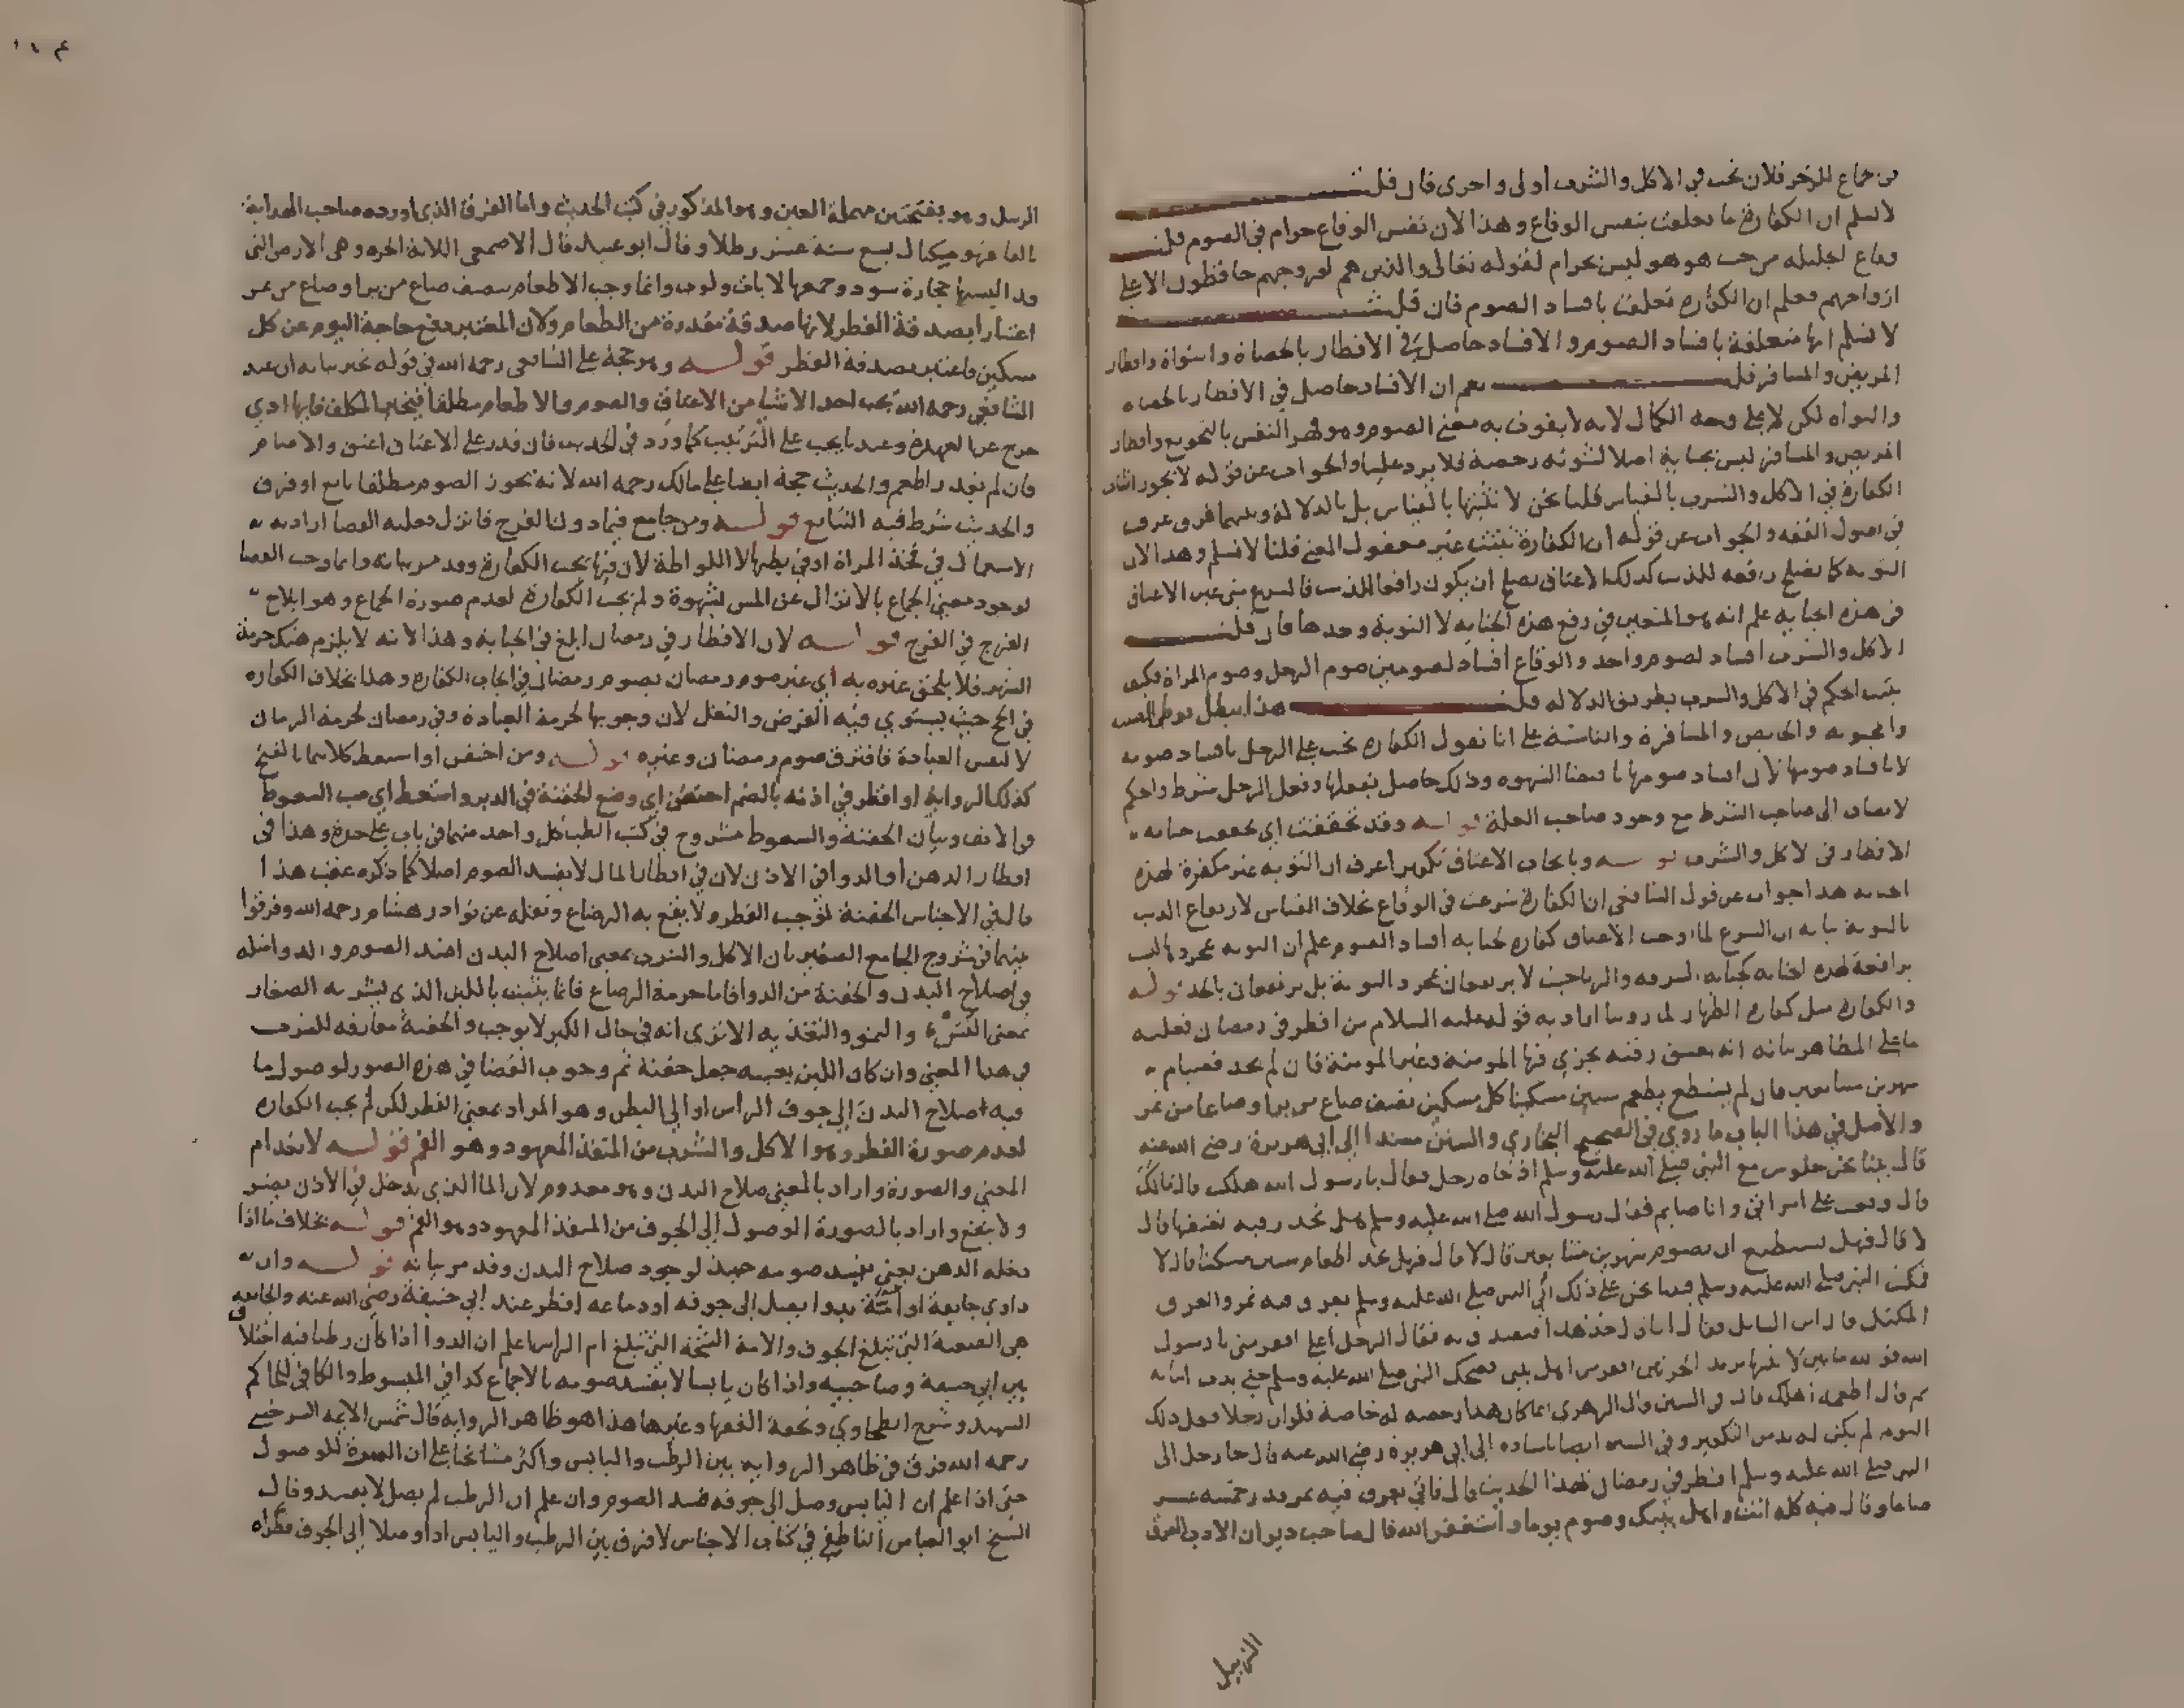 من جماع للزجر فلان تجب في الاكل والشرب اولى واحرى فان قلت
لا نسلم ان الكفارة ما تعلقت بنفس الوقاع وهذا لان نفس الوقاع حرام في الصوم قلت
وقاع الحليلة من حيث هو هو ليس بحرام لقوله تعالى والذين هم لفروجهم حافظون الا على
ازواجهم فعلم ان الكفارة تعلقت بافساد الصوم فان قلت
لا نسلم انها متعلقة بافساد الصوم والافساد حاصل في الافطار بالحصاة والنواة وافطار
المريض والمسافر قلت نعم ان الافساد حاصل في الافطار بالحصاة
والنواة لكن لا على وجه الكمال لانه لا يفوت به معنى الصوم وهو قهر النفس بالتجويع وافطار
المريض والمسافر ليس بجناية اصلا لثبوته رخصة فلا يرد علينا والجواب عن قوله لا يجوز اثبات
الكفارة في الاكل والشرب بالقياس قلنا نحن لا نثبتها بالقياس بل بالدلالة وبينهما فرق عرف
في اصول الفقه والجواب عن قوله ان الكفارة تثبت غير معقول المعنى قلنا لا نسلم وهذا لان
التوبة كما تصلح رافعة للذنب كذلك الاعتاق يصلح ان يكون رافعا للذنب فالشرع متى عين الاعتاق
في هذه الجناية علم انه هو المتعين في رفع هذه الجناية لا التوبة وحدها فان قلت
الاكل والشرب افساد لصوم واحد والوقاع افساد لصومين صوم الرجل وصوم المراة فكيف
يثبت الحكم في الاكل والشرب بطريق الدلالة قلت هذا يبطل بوطئ
لا بافساد صومها لان افساد صومها بامضا الشهوة وذلك حاصل بفعلها وفعل الرجل شرط والحكم
لا يضاف الى صاحب الشرط مع وجود صاحب العلة قوله وقد تحققت اي تحققت جناية
الافطار في الاكل والشرب قوله وبايجاب الاعتاق تكفيرا عرف ان التوبة غير مكفرة لهذه
الجناية هذا جواب عن قول الشافعي ان الكفارة شرعت في الوقاع بخلاف القياس لارتفاع الذنب
بالتوبة بيانه ان الشرع لما اوجب الاعتاق كفارة لجناية افساد الصوم علم ان التوبة بمجردها ليست
برافعة لهذه الجناية كجناية السرقة والزنا حيث لا يرتفعان بمجرد التوبة بل يرتفعان بالحد قوله
والكفارة مثل كفارة الظهار لما روينا اراد به قوله عليه السلام من افطر في رمضان فعليه
ما على المظاهر بيانه انه يعتق رقبة يجزي فيها المومنة وغير المومنة فان لم يجد فصيام
شهرين متتابعين فان لم يستطع يطعم ستين مسكينا كل مسكين نصف صاع من بر او صاعا من تمر
والاصل في هذا الباب ما روي في الصحيح البخاري والسنن مسندا الى ابي هريرة رضي الله عنه
قال بينا نحن جلوس مع النبي صلى الله عليه وسلم اذ جاه رجل فقال يا رسول الله هلكت قال مالك
قال وقعت على امراتي وانا صايم فقال رسول الله صلى الله عليه وسلم هل تجد رقبة تعتقها قال
لا قال فهل تستطيع ان تصوم شهرين متتابعين قال لا قال فهل تجد اطعام ستين مسكينا قال لا
فمكث النبي صلى الله عليه وسلم فبينا نحن على ذلك اتي النبي صلى الله عليه وسلم بعرق فيه تمر والعرق
المكتل قال اين السايل فقال انا قال خذ هذا فتصدق به فقال الرجل اعلى افقر مني يا رسول
الله فوالله ما بين لابتيها يريد الحرتين افقر من اهل بيتي فضحك النبي صلى الله عليه وسلم حتى بدت انيابه
ثم قال اطعمه اهلك قال في السنن قال الزهري انما كان هذا رخصة له خاصة فلو ان رجلا فعل ذلك
اليوم لم يكن له بد من التكفير وفي السنن ايضا باسناده الى ابي هريرة رضي الله عنه قال جا رجل الى
النبي صلى الله عليه وسلم افطر في رمضان بهذا الحديث قال فاتي بعرق فيه تمر قدر خمسة عشر
صاعا وقال فيه كله انت واهل بيتك وصوم يوما واستغفر الله قال صاحب ديوان الادب العرق
الزبيل
الزبيل وهو بفتحتين مهملة العين وهو المذكور في كتب الحديث واما الفرق الذي اورده صاحب الهداية
بالفا فهو مكيال يسع ستة عشر رطلا وقال ابو عبيد قال الاصمعي اللابة الحرة وهي الارض التي
قد البستها حجارة سود وجمعها لابات ولوب وانما وجب الاطعام بنصف صاع من بر او صاع من تمر
اعتبارا بصدقة الفطر لانها صدقة مقدرة من الطعام ولان المعتبر دفع حاجة اليوم عن كل
مسكين فاعتبر بصدقة الفطر قوله وهو حجة على الشافعي رحمه الله في قوله يخير بيانه ان عند
الشافعي رحمه الله يجب احد الاشيا من الاعتاق والصوم والاطعام مطلقا فيتخير المكلف فايها ادي
خرج عن العهدة وعندنا يجب على الترتيب كما ورد في الحديث فان قدر على الاعتاق اعتق والا صام
فان لم يقدر اطعم والحديث حجة ايضا على مالك رحمه الله لانه يجوز الصوم مطلقا تابع او فرق
والحديث شرط فيه التتابع قوله ومن جامع فيما دون الفرج فانزل فعليه القضا اراد به
الاستعمال في فخذ المراة او في بطنها لا اللواطة لان فيها تجب الكفارة وقد مر بيانه وانما وجب القضا
لوجود معنى الجماع بالانزال عن المس بشهوة ولم تجب الكفارة لعدم صورة الجماع وهو ايلاج
الفرج في الفرج قوله لان الافطار في رمضان ابلغ في الجناية وهذا لانه لا يلزم هتك حرمة
الشهر فلا يلحق غيره به اي غير صوم رمضان بصوم رمضان في ايجاب الكفارة وهذا بخلاف الكفارة
في الحج حيث يستوي فيه الفرض والنفل لان وجوبها لحرمة العبادة وفي رمضان لحرمة الزمان
لا لنفس العبادة فافترق صوم رمضان وغيره قوله ومن احتقن او استعط كلاهما بالفتح
كذلك الرواية او اقطر في اذنه بالضم احتقن اي وضع الحقنة في الدبر واستعط اي صب السعوط
في الانف وبيان الحقنة والسعوط مشروح في كتب الطب كل واحد منهما في باب على حدة وهذا في
اقطار الدهن او الدوا في الاذن لان في اقطار الما لا يفسد الصوم اصلا كما ذكره عقب هذا
قال في الاجناس الحقنة توجب الفطر ولا يقع به الرضاع ونقله عن نوادر هشام رحمه الله وفرقوا
بينهما في شروح الجامع الصغير بان الاكل والشرب بمعنى اصلاح البدن افسد الصوم والدوا مثله
في اصلاح البدن والحقنة من الدوا فاما حرمة الرضاع فانما يثبت باللبن الذي يشربه الصغار
بمعنى النشو والنمو والتغذيه الا ترى انه في حال الكبر لا يوجب والحقنة مفارقة للشرب
في هذا المعنى وان كان اللبن بعينه جعل حقنة ثم وجوب القضا في هذه الصور لوصول ما
فيه اصلاح البدن الى جوف الراس او الى البطن وهو المراد بمعنى الفطر لكن لم تجب الكفارة
لعدم صورة الفطر وهو الاكل والشرب من المنفذ المعهود وهو الفم قوله لانعدام
المعنى والصورة واراد بالمعنى صلاح البدن وهو معدوم لان الما الذي يدخل في الاذن يضر
ولا ينفع واراد بالصورة الوصول الى الجوف من المنفذ المعهود وهو الفم قوله بخلاف ما اذا
دخله الدهن يعني يفسد صومه حينئذ لوجود صلاح البدن وقد مر بيانه قوله وان
داوي جايفة او امة بدوا يصل الى جوفه او دماغه افطر عند ابي حنيفة رضي الله عنه والجايفة
هي الطعنة التي تبلغ الجوف والامة الشجة التي تبلغ ام الراس اعلم ان الدوا اذا كان رطبا فيه اختلاف
بين ابي حنيفة وصاحبيه واذا كان يابسا لا يفسد صومه بالاجماع كذا في المبسوط والكافي للحاكم
الشهيد وشرح الطحاوي وتحفة الفقها وغيرها هذا هو ظاهر الرواية قال شمس الايمة السرخسي
رحمه الله فرق في ظاهر الرواية بين الرطب واليابس واكثر مشايخنا على ان العبرة للوصول
حتى اذا علم ان اليابس وصل الى جوفه فسد الصوم وان علم ان الرطب لم يصل لا يفسد وقال
الشيخ ابو العباس الناطفي في كتاب الاجناس لا فرق بين الرطب واليابس اذا وصلا الى الجوف فطراه